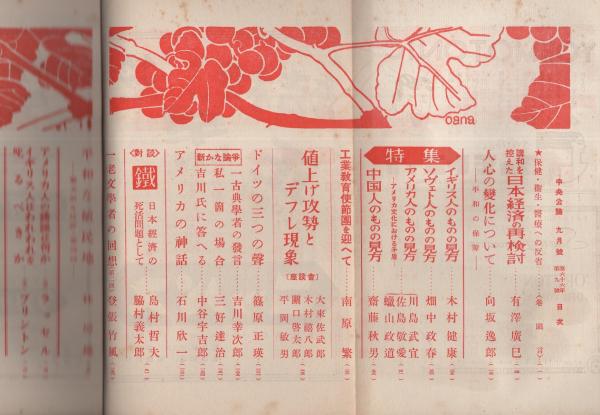 oana
中央公論 九月號 第六十六年 第九號 目次
★保健・衞生・醫療への反省……(卷頭言)
講和を控えた 日本経済の再検討 有澤廣巳
人心の變化について 向坂逸郎
―平和の保障―
特集
イギリス人のものの見方 木村健康
ソヴェト人のものの見方 畑中政春
アメリカ人のものの見方 川島武宜
―アメリカ文化における矛盾 佐島敬愛
蠟山政道
中国人のものの見方 齋藤秋男
工業教育使節團を迎へて 南原繁
値上げ攻勢とデフレ現象 (座談會)
大來佐武郎
木村禧八郎
關口啓太郎
平岡敏男
ドイツの三つの聲 篠原正瑛
新かな論爭
一古典學者の發言 吉川幸次郎
私一箇の場合 三好達治
吉川氏に答へる 中谷宇吉郎
アメリカの神話 石川欣一
<對談> 鐵 日本經濟の死活問題として
島村哲夫
脇村義太郎
一老文學者の回想(第二回) 登張竹風
平和
植民地
林
アメリカ人は
イギリス人はわれわれを
叱るべきか
ラッセル
プリントン